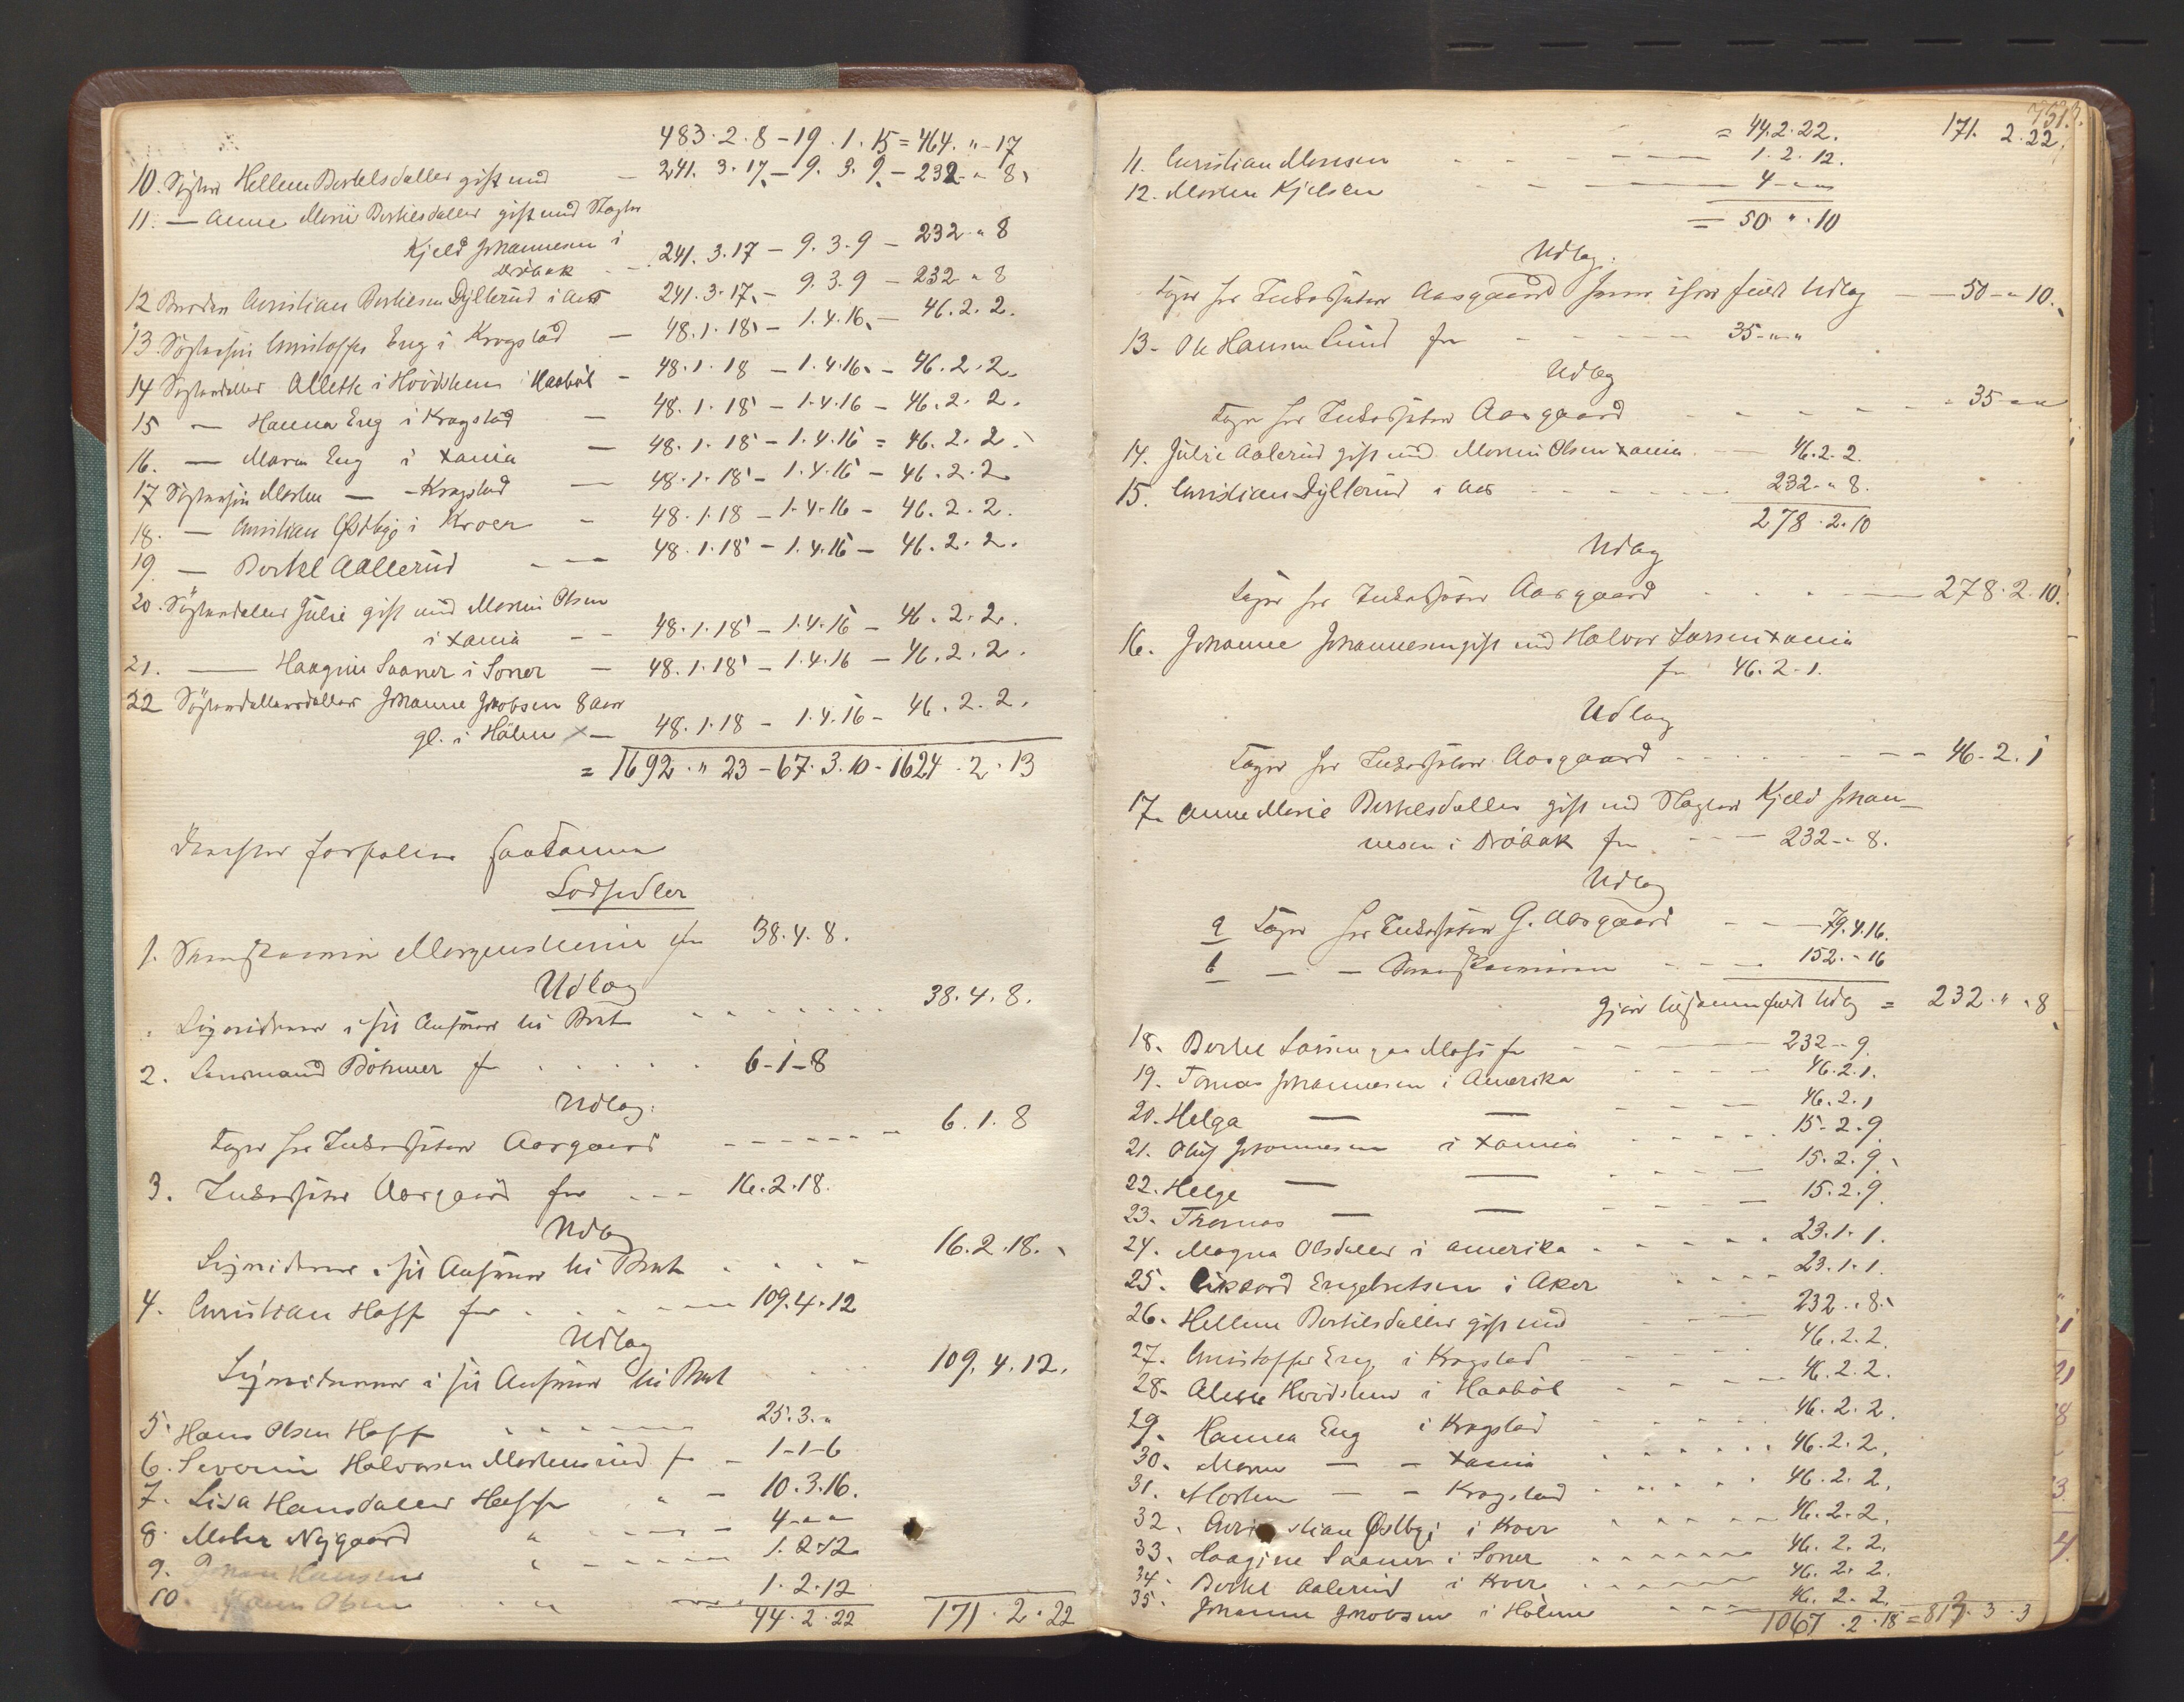 483 · 2 · 8 - 19 · 1 · 15 = 464 · " - 17
10. Søster Hellene Bertelsdatter gift med — 241. 3. 17 - 9. 3. 9 - 232 - " 8
11. — Anne Marie Bertelsdatter gift med Slagter
Kjeld Johannesen i
Drøbak - - 241. 3. 17 - 9. 3. 9 - 232 - " 8
12 Broder Christian Bertelsen Dyllerud i Aas 241. 3. 17. - 9. 3. 9 - 232 " 8
13. Søstersøn Christoffer Eng i Krogstad — 48. 1. 18 - 1. 4. 16. - 46. 2. 2.
14 Søsterdatter Alette i Hovdshem i Haabøl - 48. 1. 18 - 1. 4. 16. - 46. 2. 2.
15 — Hanna Eng i Krogstad — 48. 1. 18 - 1. 4. 16 - 46. 2. 2.
16. — Maren Eng i Xania — 48. 1. 18 - 1. 4. 16 = 46. 2. 2.
17 Søstersøn Morten — - Krogstad — 48. 1. 18 - 1. 4. 16 - 46. 2. 2.
18. — Christian Østbye i Kroer - 48. 1. 18 - 1. 4. 16 - 46. 2. 2.
19 — Bertel Aallerud - - — 48. 1. 18 - 1. 4. 16 - 46. 2. 2.
20. Søsterdatter Julie gift med Martin Olsen
i Xania - - 48. 1. 18 - 1. 4. 16 - 46. 2. 2.
21. — Haagine Saaner i Soner - 48. 1. 18 - 1. 4. 16 - 46. 2. 2.
22 Søsterdattersdatter Johanne Jacobsen 8 aar
gl. i Hølen X — 48. 1. 18 - 1. 4. 16 - 46. 2. 2.
= 1692 · " 23 - 67. 3. 10 - 1624 · 2 · 13
saadanne
Lodsedler
1. Morgenstierne for 38. 4. 8.
Udlag
Ligvideres i sit Ansvar til Boet 38. 4. 8.
2. Lensmand Bøhmer for 6 - 1 - 8
Udlag.
Tager Hr Inkassator Aasgaard 6. 1. 8
3. Inkassator Aasgaard for - - - 16. 2. 18.
Udlag
Ligvideres i sit Ansvar til Boet 16. 2. 18.
4. Christian Hoff for 109. 4. 12
Udlag
Ligvideres i sit Ansvar til Boet 109. 4. 12.
5. Hans Olsen Hoff 25. 3. "
6. Severin Halvorsen Mortensrud for - 1 - 1 - 6
7. Lisa Hansdatter Hoff " - 10. 3. 16.
8. Nygaard " 4 - " "
9. Johan Hansen " 1. 2. 12
10. Olsen " 1. 2. 12
44 · 2 · 22 171 · 2 · 22
751.
= 44. 2. 22. 171. 2. 22.
11. Christian Monsen 1. 2. 12.
12. Morten Kjelsen 4 - " "
= 50 " · 10
Udlag.
Tager Hr Inkassator Aasgaard fuldt Udlag — 50 - " 10.
13. Ole Hansen Lund for 35 - " "
Udlag
Tager Hr Inkassator Aasgaard 35 - " "
14. Julie Aalerud gift med Martin Olsen Xania. — 46. 2. 2.
15. Christian Dyllerud i Aas 232 - " 8.
278 · 2. 10
Udlag
Tager Hr Inkassator Aasgaard 278. 2. 10.
16. Johanne Johannesen gift med Halvor Larsen Xania
for 46. 2. 1.
Udlag
Tager Hr Inkassator Aasgaard 46. 2. 1
17. Anne Marie Bertelsdatter gift med Slagter Kjeld Johan-
nesen i Drøbak for 232 - " 8.
Udlag
a Tager Hr Inkassator G. Aasgaard 79. 4. 16.
b — - 152. " 16
Gjør tilsammen fuldt Udlag = 232 · " · 8
18. Bertel Larsen paa Moss for 232 - " 9.
19. Tomas Johannesen i Amerika 46. 2. 1.
20. Helga — — 46. 2. 1
21. Oluf Johannesen i Xania 15. 2. 9
22. Helge — — 15. 2. 9.
23. Thomas — — 15. 2. 9.
24. Magna Olsdatter i Amerika 23. 1. 1.
25. Edvard Engebretsen i Aker 23. 1. 1.
26. Hellene Bertelsdatter gift med 232. " 8.
27. Christoffer Eng i Krogstad 46. 2. 2.
28. Alette Hovdshem i Haabøl 46. 2. 2.
29. Hanna Eng i Krogstad 46. 2. 2.
30. Maren — - Xania 46. 2. 2.
31. Morten — - Krogstad 46. 2. 2.
32. Christian Østbye i Kroer 46. 2. 2.
33. Haagine Saaner i Soner 46. 2. 2.
34. Bertel Aalerud i Kroer 46. 2. 2.
35. Johanne Jacobsen i Hølen 46. 2. 2.
1067 · 2 · 18 = 817 · 3 · 3